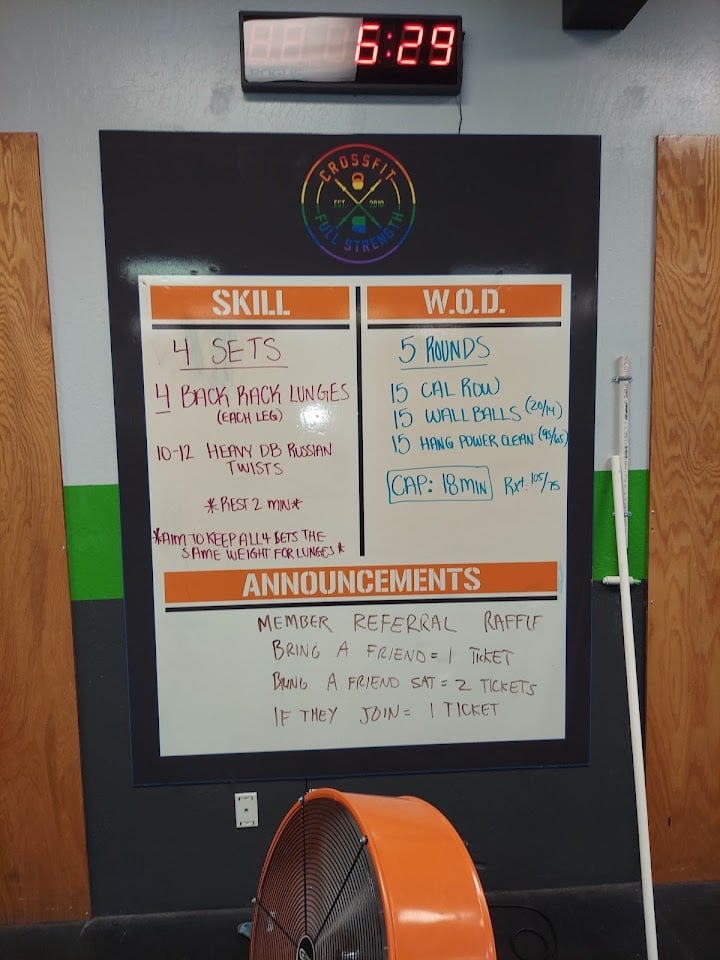 6:29
ROGUE
CROSSFIT
EST 2018
FULL STRENGTH
SKILL
4 SETS
4 BACK RACK LUNGES
(EACH LEG)
10-12 HEAVY DB RUSSIAN
TWISTS
*REST 2 MIN*
*AIM TO KEEP ALL 4 SETS THE
SAME WEIGHT FOR LUNGES*
W.O.D.
5 ROUNDS
15 CAL ROW
15 WALL BALLS (20/14)
15 HANG POWER CLEAN (95/65)
CAP: 18 MIN Rx+: 105/75
ANNOUNCEMENTS
MEMBER REFERRAL RAFFLE
BRING A FRIEND = 1 TICKET
BRING A FRIEND SAT = 2 TICKETS
IF THEY JOIN = 1 TICKET